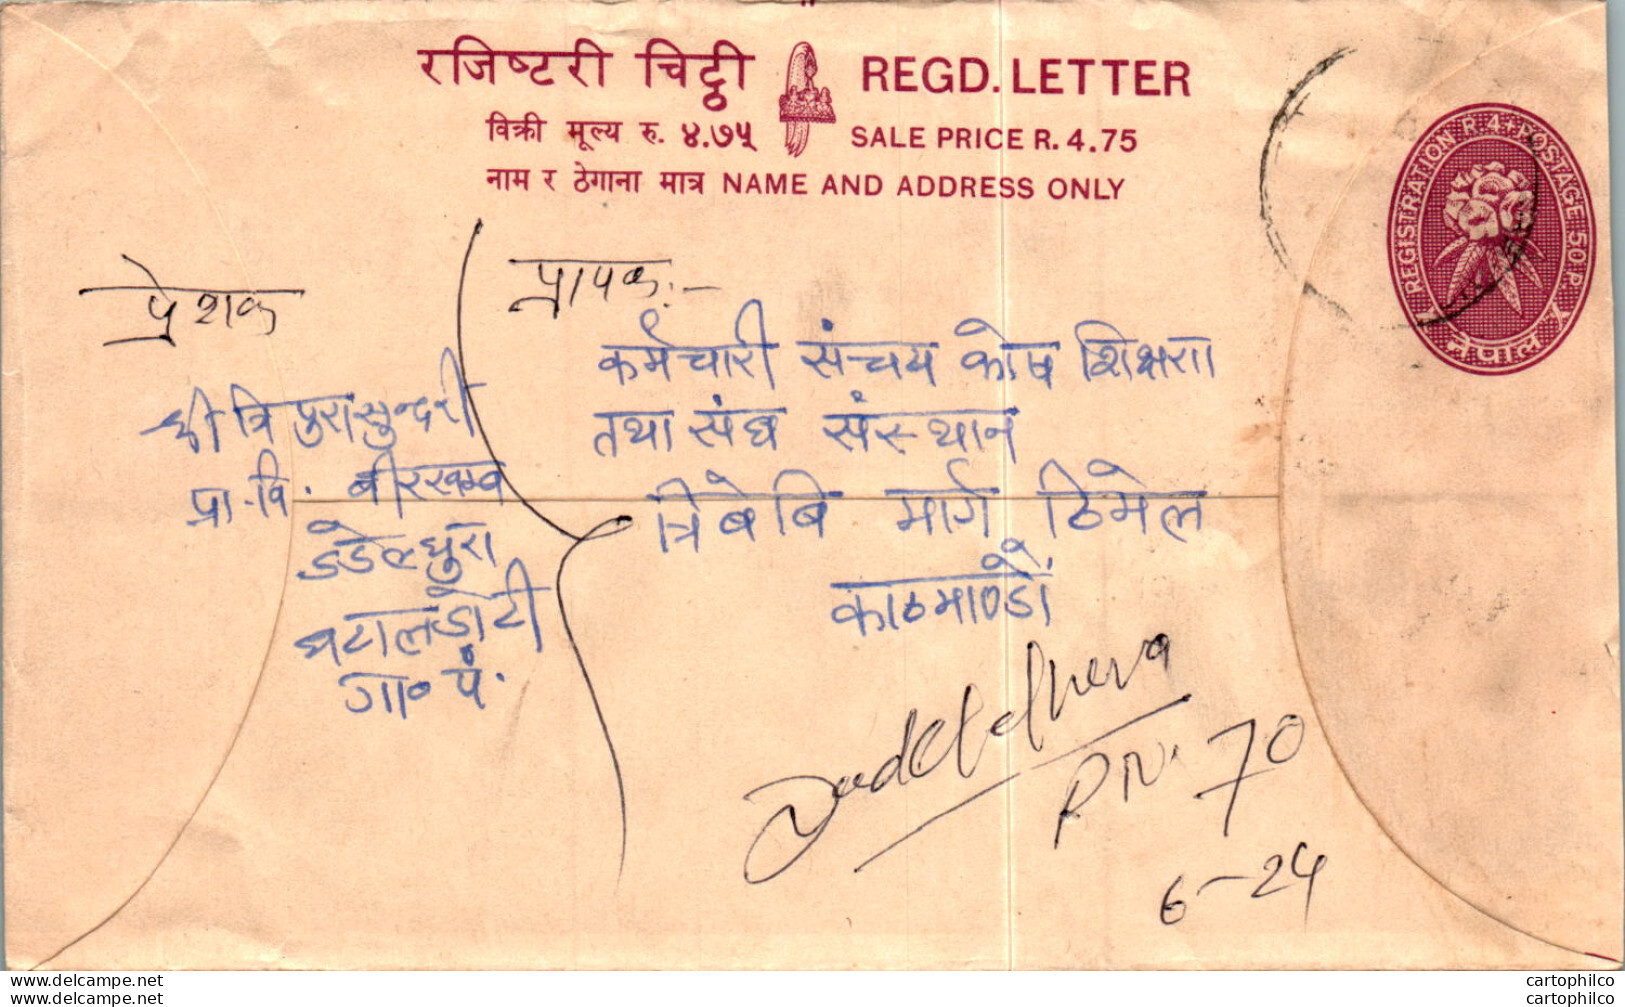 रजिष्टरी चिट्ठी REGD. LETTER
विक्री मूल्य रु. ४.७५ SALE PRICE R. 4.75
नाम र ठेगाना मात्र NAME AND ADDRESS ONLY
REGISTRATION R.4 + POSTAGE 50 P.
नेपाल
प्रेशक
श्री त्रिपुरासुन्दरी
प्रा.वि. बीरखम्ब
डडेलधुरा
घटालडोटी
गा॰ पं.
प्रापक:-
कर्मचारी संचय कोष शिक्षण
तथा संघ संस्थान
त्रिबेबि मार्ग ठिमेल
काठमाण्डौं
Dadeldhura
RN. 70
6-24
cartophilco
cartophilco
cartophilco
cartophilco